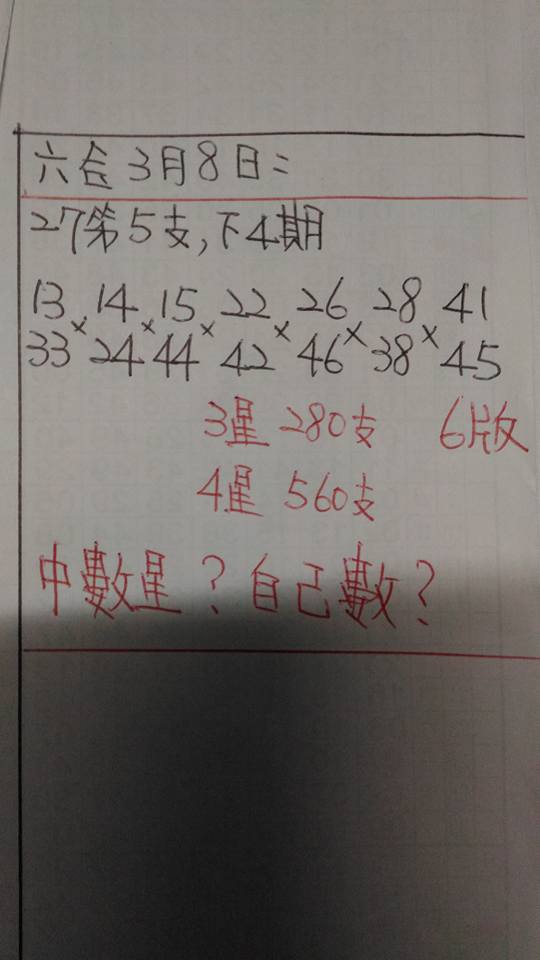 六合3月8日=
27第5支,下4期
13 14 15 22 26 28 41
× × × × × ×
33 24 44 42 46 38 45
3星 280支 6版
4星 560支
中數星?自己數?